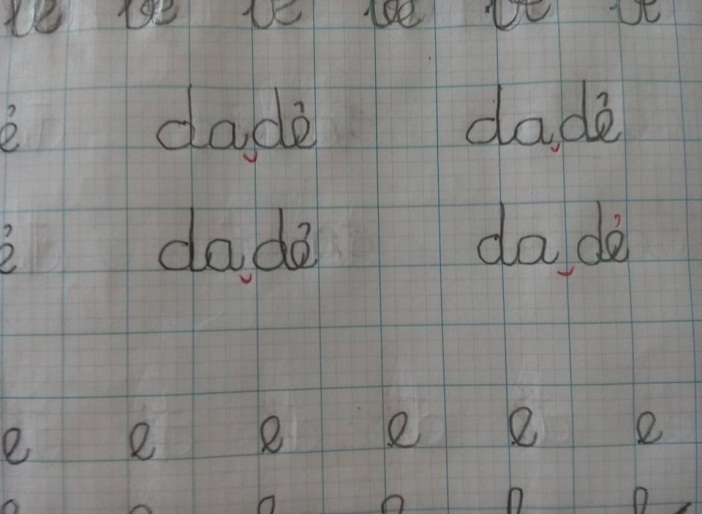 ẻ da dẻ da dẻ
ẻ da dẻ da dẻ
e e e e e e